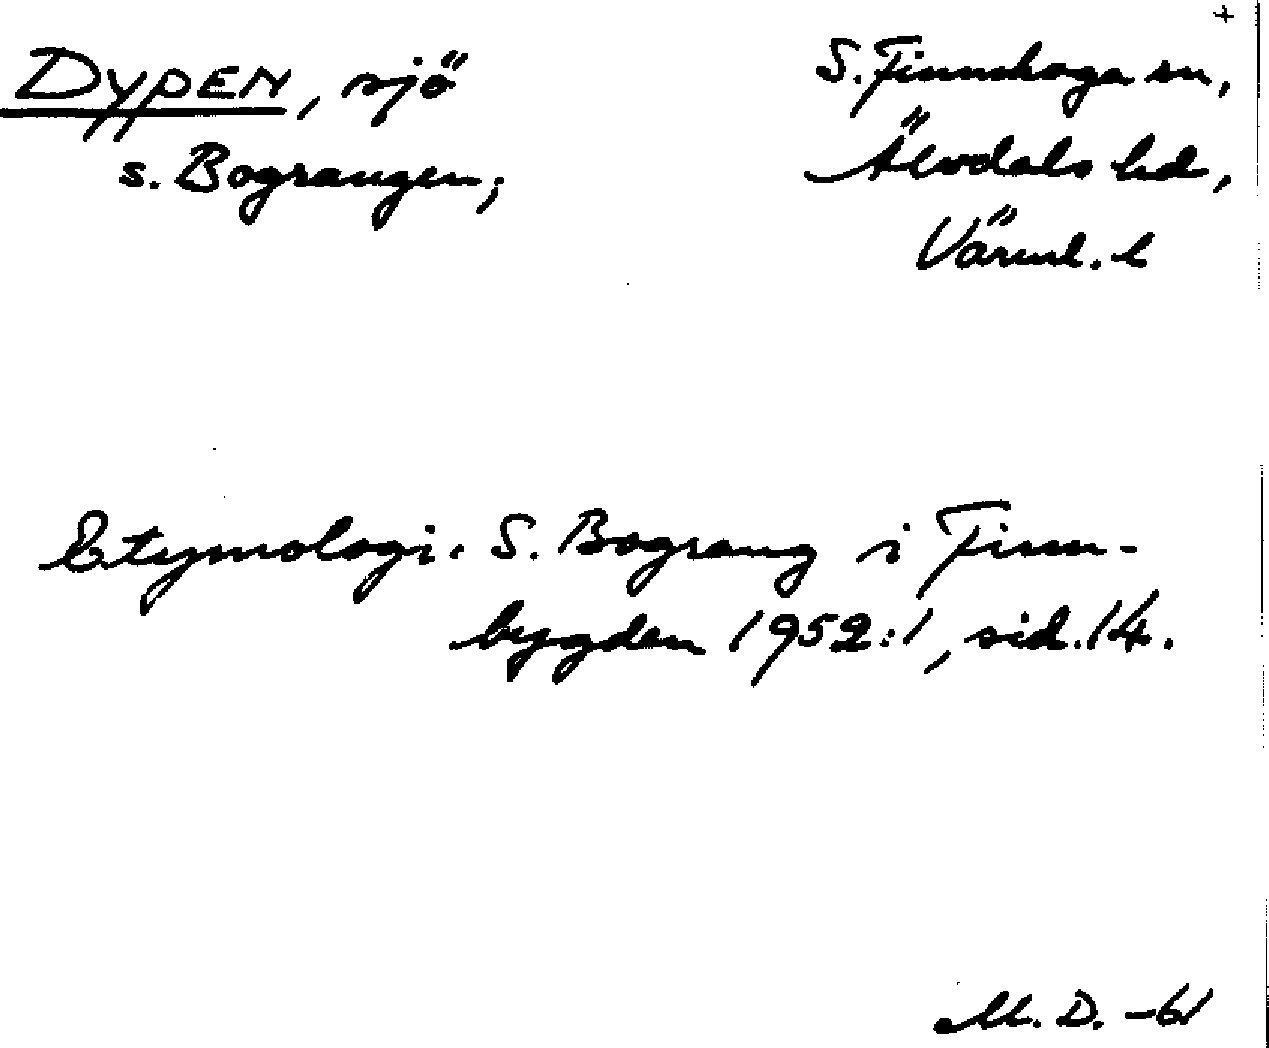 +
DYPEN, sjö
s. Bograngen;
S. Finnskoga sn,
Älvdals hd,
Värml. l
Etymologi. S. Bograng i Finn-
bygden 1952:1, sid. 14.
M. D. -61